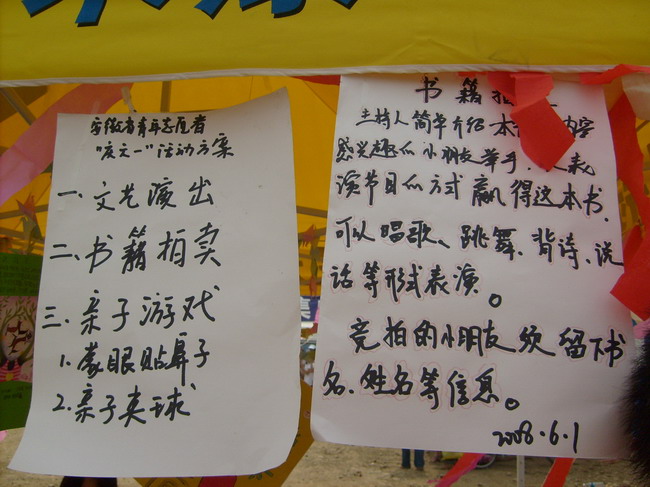 安徽省青年志愿者
“庆六一”活动方案
一、文艺演出
二、书籍拍卖
三、亲子游戏
1.蒙眼贴鼻子
2.亲子夹球
书籍拍
主持人简单介绍本 内容
感兴趣的小朋友举手, 表
演节目的方式赢得这本书.
可以唱歌、跳舞、背诗、说
话等形式表演。
竞拍的小朋友须留下书
名、姓名等信息。
2008.6.1